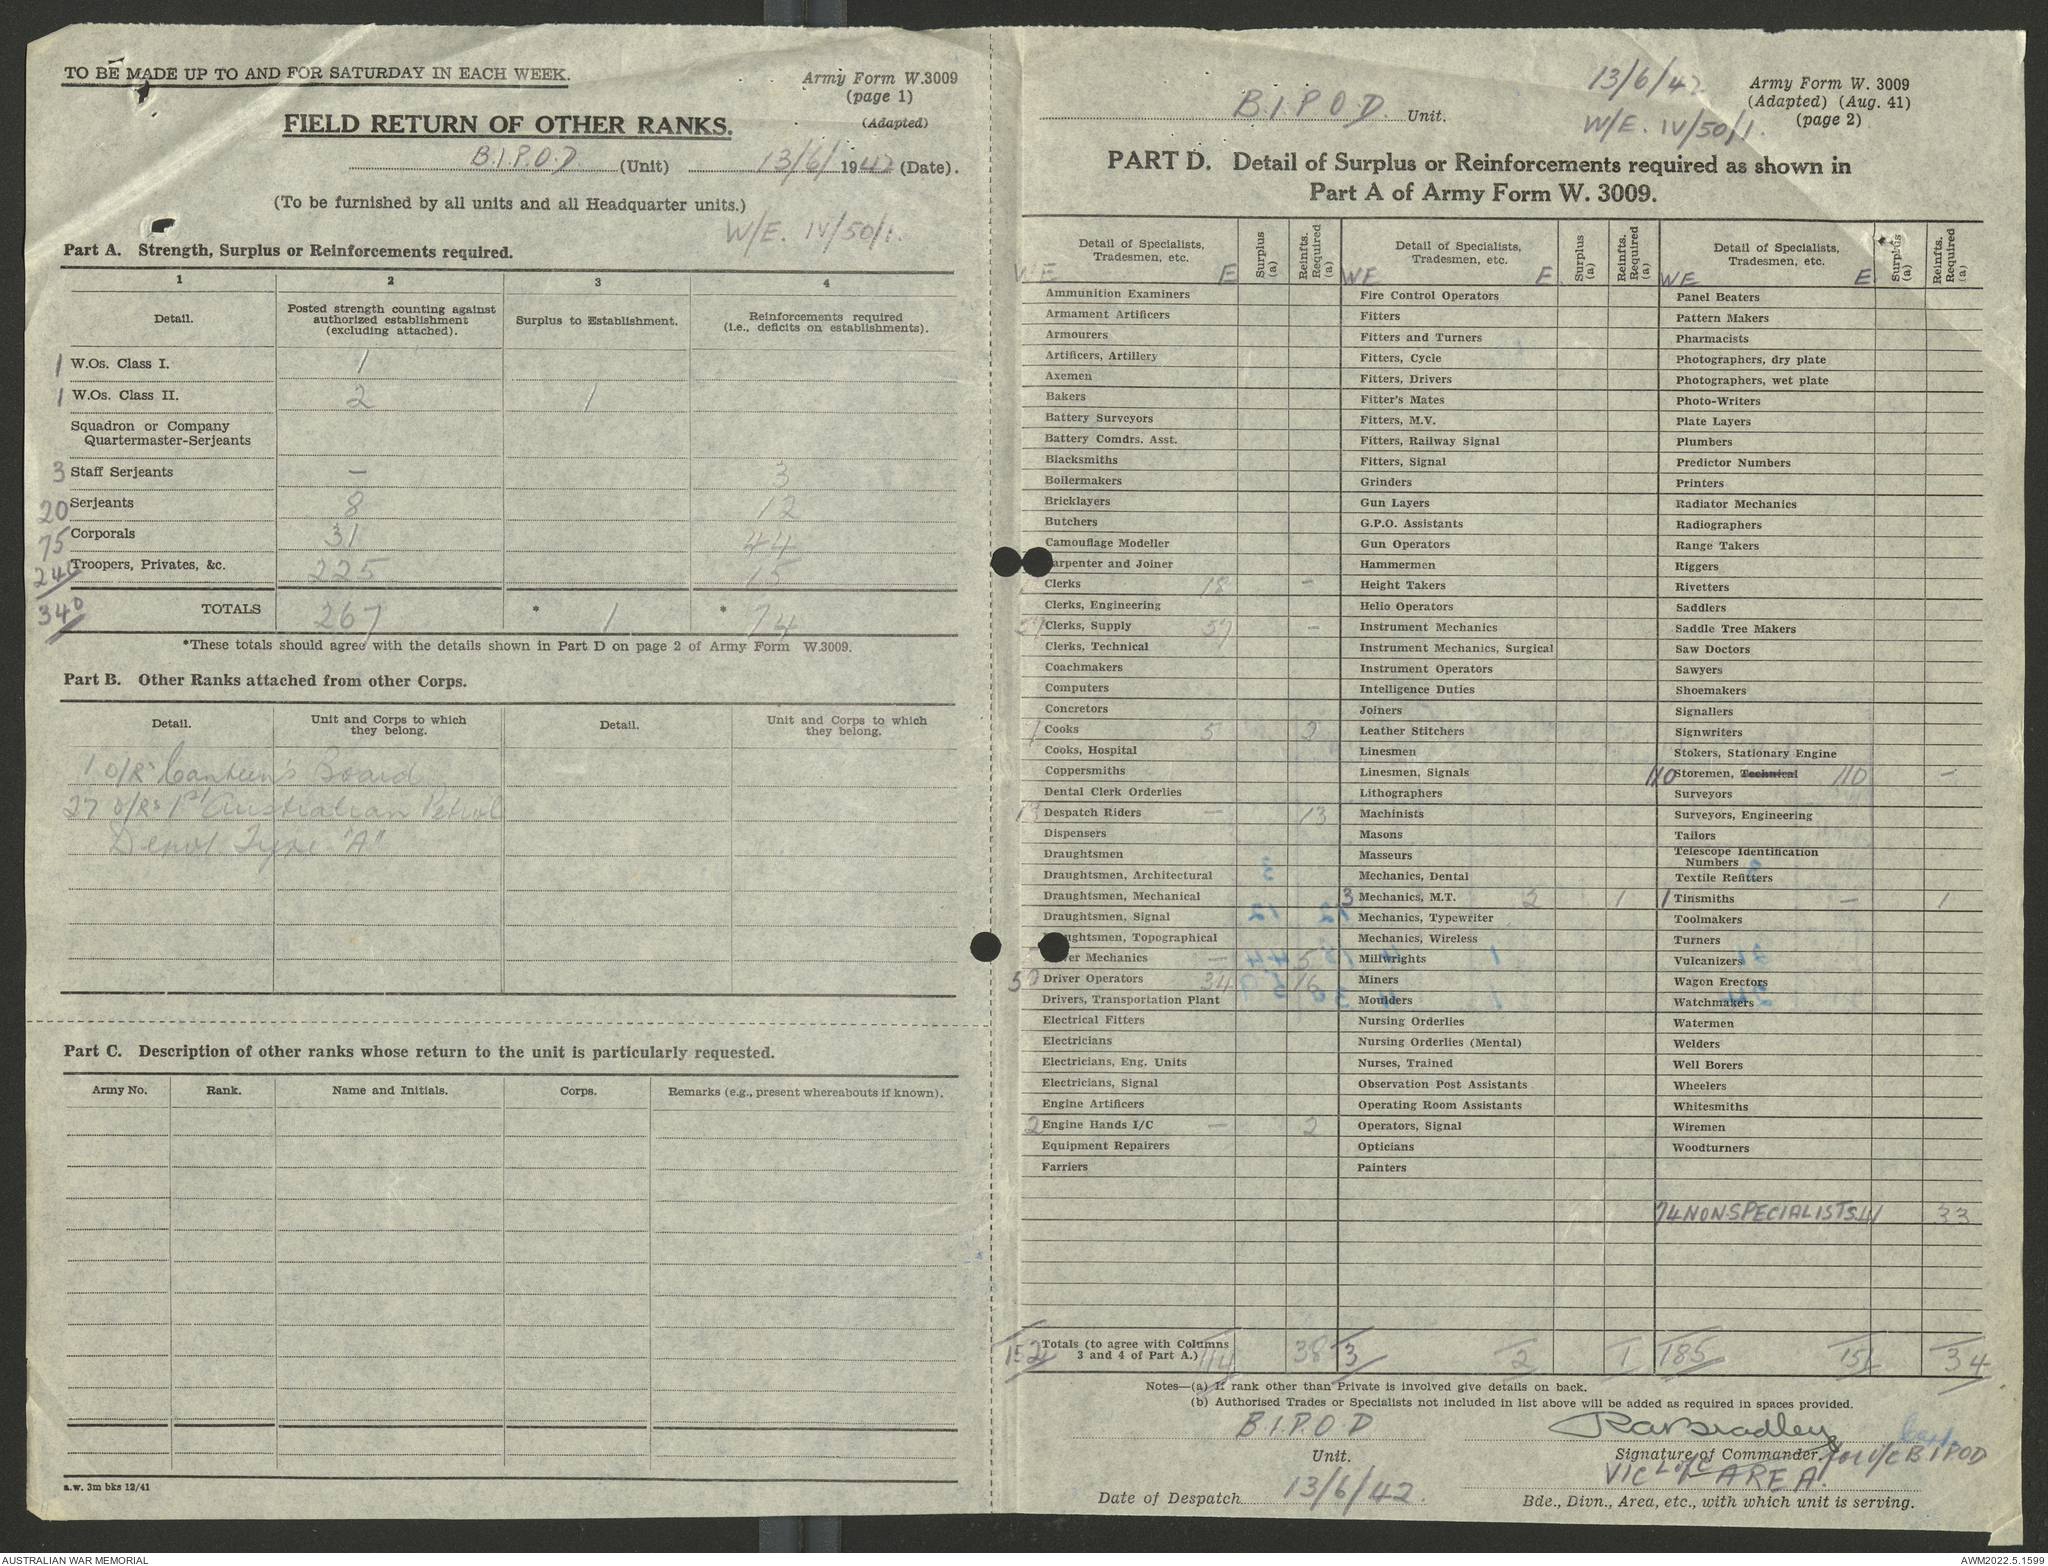 TO BE MADE UP TO AND FOR SATURDAY IN EACH WEEK.
Army Form W.3009
(page 1)
(Adapted)
FIELD RETURN OF OTHER RANKS.
B.I.P.O.D. (Unit) 13/6/1942 (Date).
(To be furnished by all units and all Headquarter units.)
W/E. IV/50/1.
Part A. Strength, Surplus or Reinforcements required.
1 2 3 4
Detail. Posted strength counting against authorized establishment (excluding attached). Surplus to Establishment. Reinforcements required (i.e., deficits on establishments).
1 W.Os. Class I. 1
1 W.Os. Class II. 2 1
Squadron or Company
Quartermaster-Serjeants
3 Staff Serjeants — 3
20 Serjeants 8 12
75 Corporals 31 44
240 Troopers, Privates, &c. 225 15
340 TOTALS 267 * 1 * 74
*These totals should agree with the details shown in Part D on page 2 of Army Form W.3009.
Part B. Other Ranks attached from other Corps.
Detail. Unit and Corps to which they belong. Detail. Unit and Corps to which they belong.
1 O/R Canteen's Board
27 O/Rs 1st Australian Petrol
Depot Type "A"
Part C. Description of other ranks whose return to the unit is particularly requested.
Army No. Rank. Name and Initials. Corps. Remarks (e.g., present whereabouts if known).
a.w. 3m bks 12/41
B.I.P.O.D. Unit.
13/6/42
W/E. IV/50/1.
Army Form W. 3009
(Adapted) (Aug. 41)
(page 2)
PART D. Detail of Surplus or Reinforcements required as shown in
Part A of Army Form W. 3009.
Detail of Specialists, Tradesmen, etc. Surplus (a) Reinfts. Required (a)
WE E
Ammunition Examiners
Armament Artificers
Armourers
Artificers, Artillery
Axemen
Bakers
Battery Surveyors
Battery Comdrs. Asst.
Blacksmiths
Boilermakers
Bricklayers
Butchers
Camouflage Modeller
arpenter and Joiner
Clerks 18 —
Clerks, Engineering
Clerks, Supply 57 —
Clerks, Technical
Coachmakers
Computers
Concretors
7 Cooks 5 2
Cooks, Hospital
Coppersmiths
Dental Clerk Orderlies
13 Despatch Riders — 13
Dispensers
Draughtsmen
Draughtsmen, Architectural
Draughtsmen, Mechanical
Draughtsmen, Signal
ughtsmen, Topographical
er Mechanics — 5
50 Driver Operators 34 16
Drivers, Transportation Plant
Electrical Fitters
Electricians
Electricians, Eng. Units
Electricians, Signal
Engine Artificers
2 Engine Hands I/C — 2
Equipment Repairers
Farriers
Detail of Specialists, Tradesmen, etc. Surplus (a) Reinfts. Required (a)
WE E
Fire Control Operators
Fitters
Fitters and Turners
Fitters, Cycle
Fitters, Drivers
Fitter's Mates
Fitters, M.V.
Fitters, Railway Signal
Fitters, Signal
Grinders
Gun Layers
G.P.O. Assistants
Gun Operators
Hammermen
Height Takers
Helio Operators
Instrument Mechanics
Instrument Mechanics, Surgical
Instrument Operators
Intelligence Duties
Joiners
Leather Stitchers
Linesmen
Linesmen, Signals
Lithographers
Machinists
Masons
Masseurs
Mechanics, Dental
3 Mechanics, M.T. 2 1
Mechanics, Typewriter
Mechanics, Wireless
Millwrights
Miners
Moulders
Nursing Orderlies
Nursing Orderlies (Mental)
Nurses, Trained
Observation Post Assistants
Operating Room Assistants
Operators, Signal
Opticians
Painters
Detail of Specialists, Tradesmen, etc. Surplus (a) Reinfts. Required (a)
WE E
Panel Beaters
Pattern Makers
Pharmacists
Photographers, dry plate
Photographers, wet plate
Photo-Writers
Plate Layers
Plumbers
Predictor Numbers
Printers
Radiator Mechanics
Radiographers
Range Takers
Riggers
Rivetters
Saddlers
Saddle Tree Makers
Saw Doctors
Sawyers
Shoemakers
Signallers
Signwriters
Stokers, Stationary Engine
110 Storemen, Technical 110 —
Surveyors
Surveyors, Engineering
Tailors
Telescope Identification
Numbers
Textile Refitters
1 Tinsmiths — 1
Toolmakers
Turners
Vulcanizers
Wagon Erectors
Watchmakers
Watermen
Welders
Well Borers
Wheelers
Whitesmiths
Wiremen
Woodturners
74 NON-SPECIALISTS 41 33
152 Totals (to agree with Columns 3 and 4 of Part A.) 114 38 3 2 1 185 151 34
Notes—(a) If rank other than Private is involved give details on back.
(b) Authorised Trades or Specialists not included in list above will be added as required in spaces provided.
B.I.P.O.D
Unit.
RABradley Capt
Signature of Commander. for O/C BIPOD
VIC L of C AREA.
Date of Despatch 13/6/42.
Bde., Divn., Area, etc., with which unit is serving.
AUSTRALIAN WAR MEMORIAL
AWM2022.5.1599